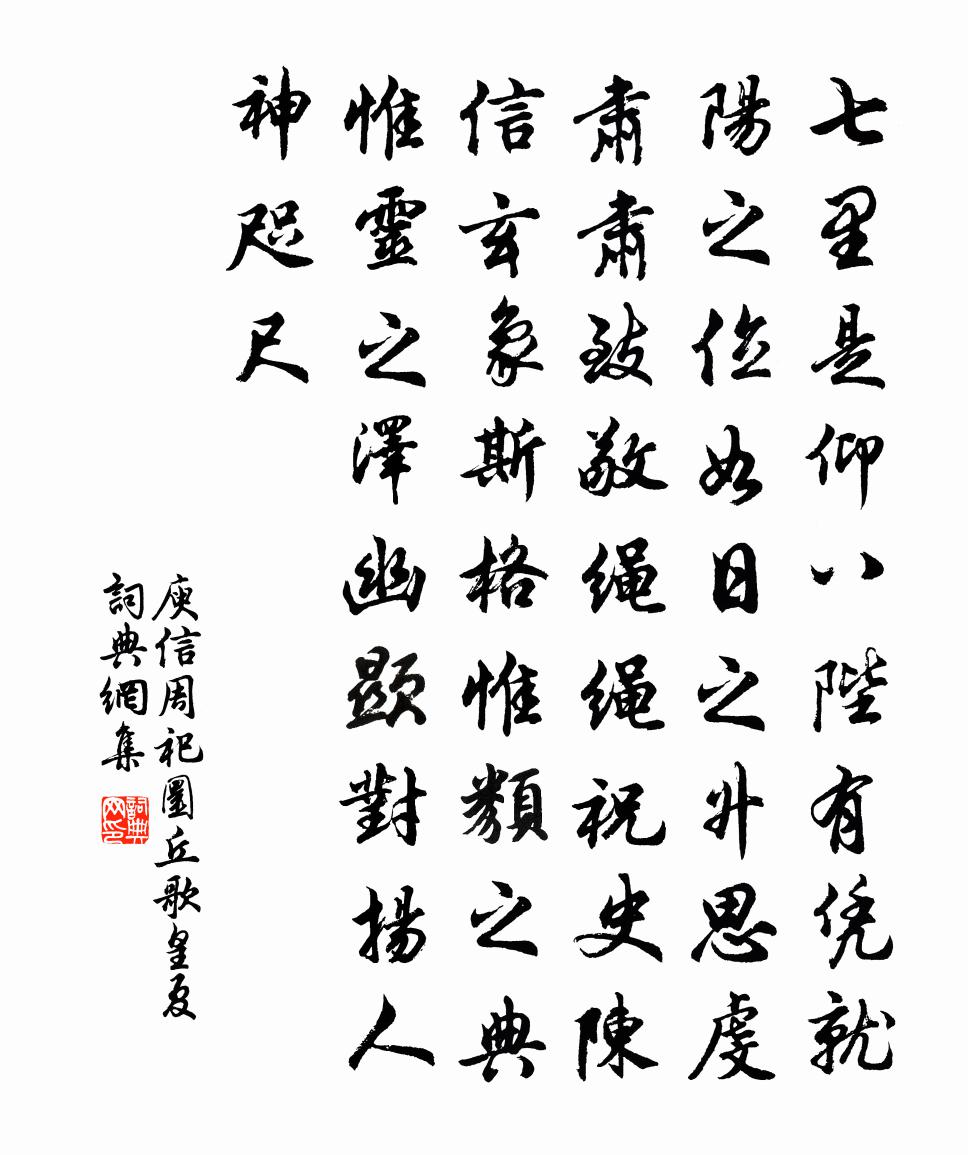 七里是仰八陛有凭就
陽之位如日之升思虔
肅肅致敬绳绳祝史陳
信玄象斯格惟類之典
惟靈之澤幽顯對揚人
神咫尺
庾信周祀圜丘歌皇夏
詞典網集
詞典网印